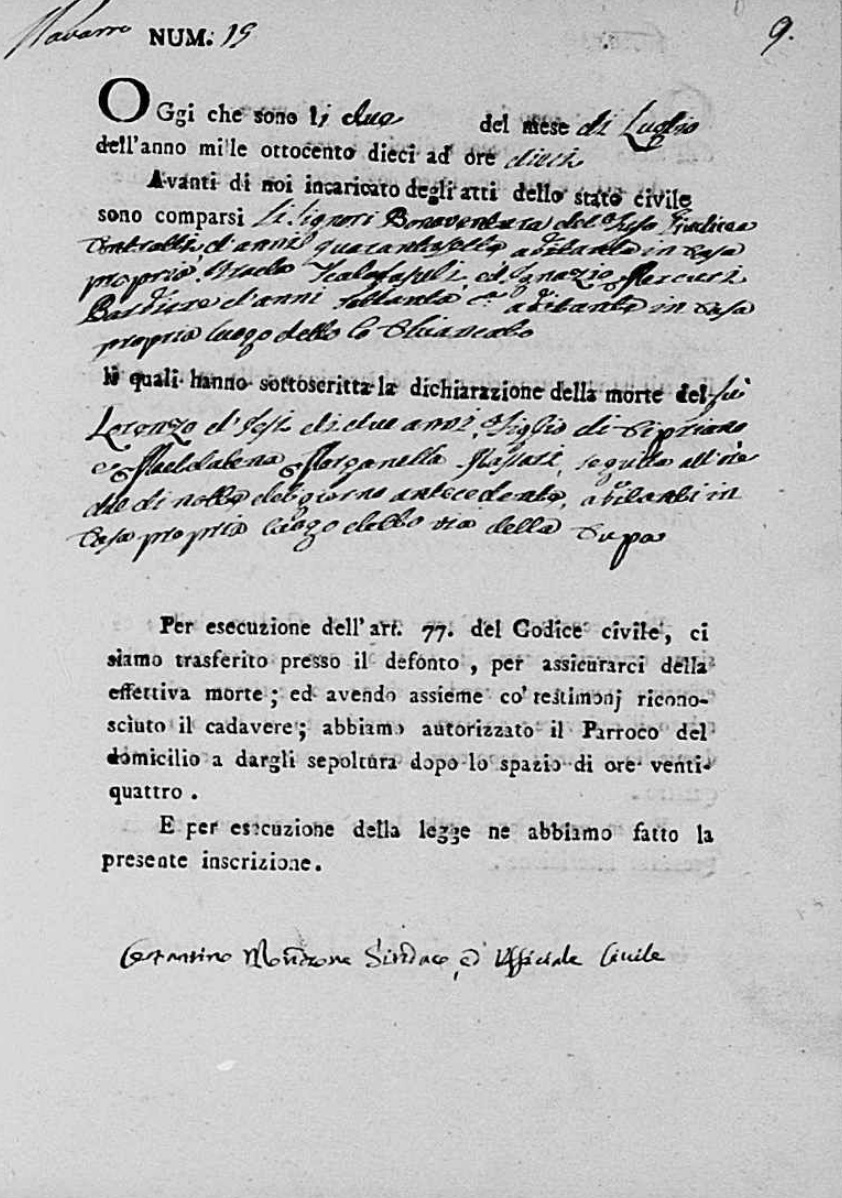 Navarro NUM. 19 9.
OGgi che sono li due del mese di Luglio
dell'anno mille ottocento dieci ad ore dieci
Avanti di noi incaricato degli atti dello stato civile
sono comparsi li Signori Bonaventura del
d'anni quarantasette, abitante in Casa
propria, ed Ignazio
d'anni settanta abitante in Casa
propria luogo detto lo
li quali hanno sottoscritta la dichiarazione della morte del fu
Lorenzo d' di due anni, figlio di Cipriano
e Maddalena seguita all'ore
due di notte del giorno antecedente, abitanti in
Casa propria luogo detto via della Cupa
Per esecuzione dell'art. 77. del Codice civile, ci
siamo trasferito presso il defonto, per assicurarci della
effettiva morte; ed avendo assieme co' testimonj ricono-
sciuto il cadavere; abbiamo autorizzato il Parroco del
domicilio a dargli sepoltura dopo lo spazio di ore venti-
quattro.
E per esecuzione della legge ne abbiamo fatto la
presente inscrizione.
Costantino Sindaco, ed Ufficiale Civile